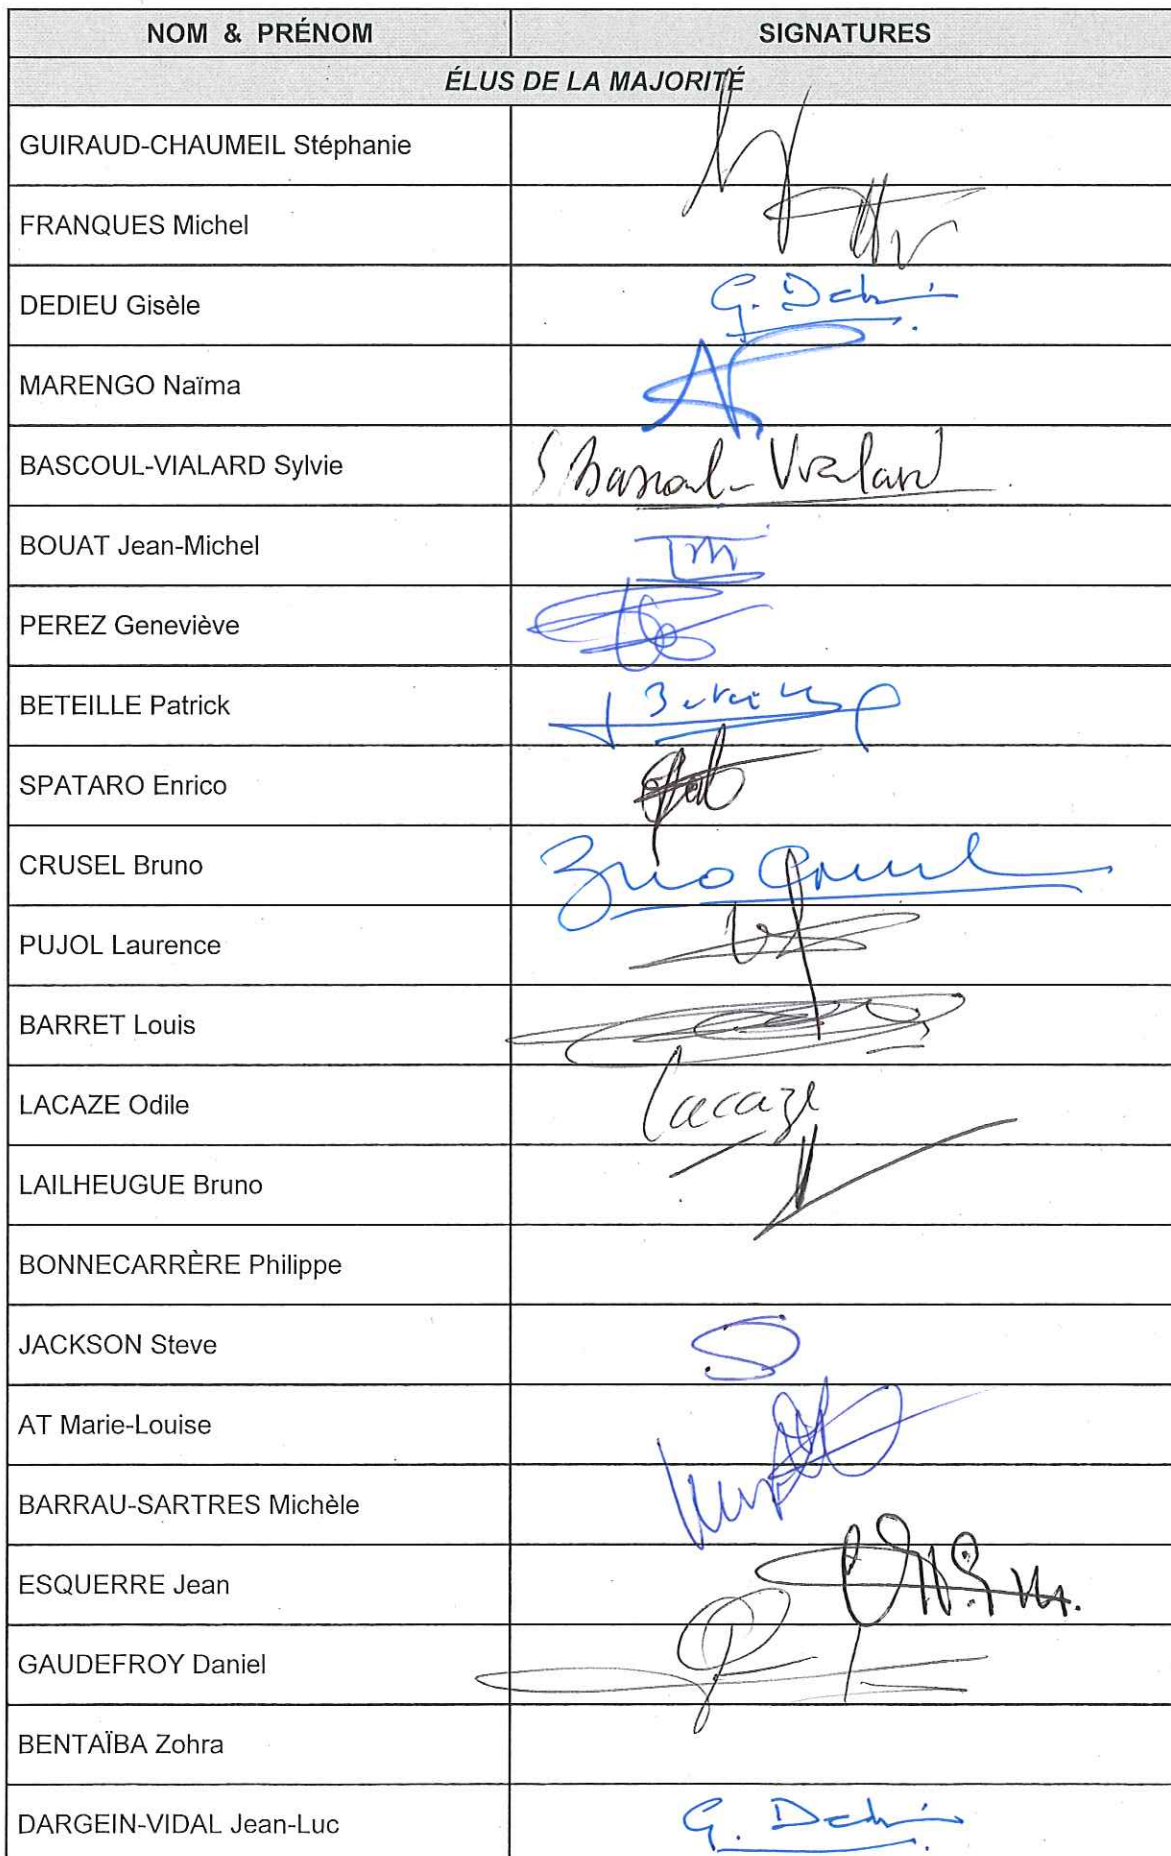 NOM & PRÉNOM SIGNATURES
ÉLUS DE LA MAJORITÉ
GUIRAUD-CHAUMEIL Stéphanie
FRANQUES Michel
DEDIEU Gisèle G. Dedieu
MARENGO Naïma
BASCOUL-VIALARD Sylvie S Bascoul-Vialard
BOUAT Jean-Michel
PEREZ Geneviève
BETEILLE Patrick
SPATARO Enrico
CRUSEL Bruno Bruno Crusel
PUJOL Laurence
BARRET Louis
LACAZE Odile Lacaze
LAILHEUGUE Bruno
BONNECARRÈRE Philippe
JACKSON Steve
AT Marie-Louise
BARRAU-SARTRES Michèle
ESQUERRE Jean
GAUDEFROY Daniel
BENTAÏBA Zohra
DARGEIN-VIDAL Jean-Luc G. Dedieu